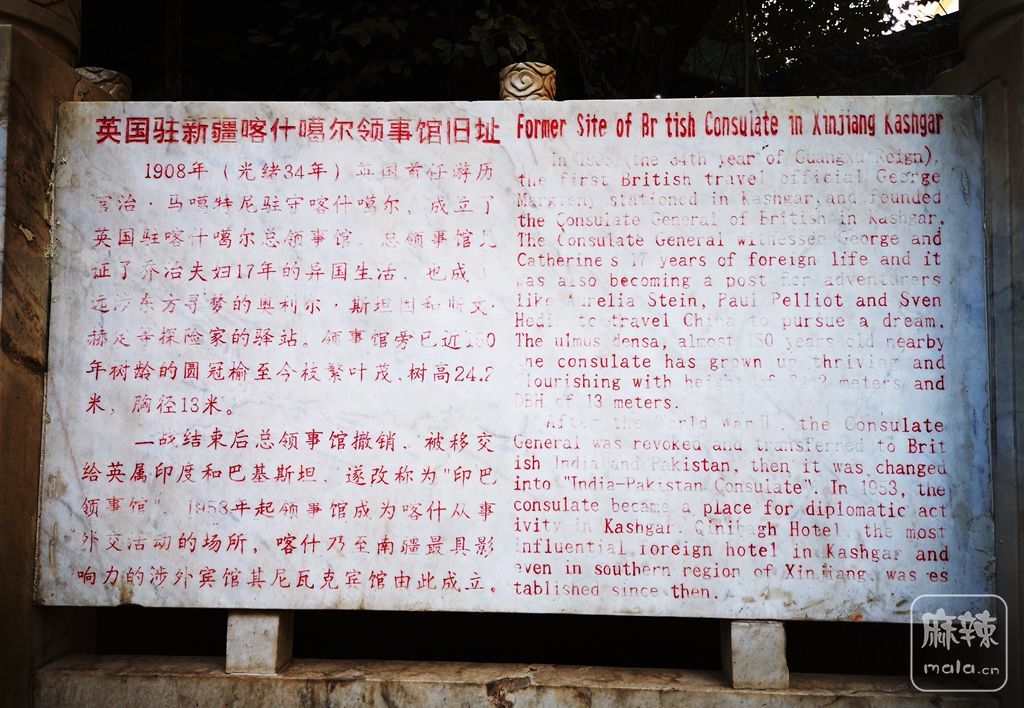 英国驻新疆喀什噶尔领事馆旧址
1908年（光绪34年）英国首任游历
官治·马噶特尼驻守喀什噶尔，成立了
英国驻喀什噶尔总领事馆。总领事馆见
证了乔治夫妇17年的异国生活，也成
远涉东方寻梦的奥利尔·斯坦因和斯文·
赫定等探险家的驿站。领事馆旁已近150
年树龄的圆冠榆至今枝繁叶茂，树高24.2
米，胸径13米。
二战结束后总领事馆撤销，被移交
给英属印度和巴基斯坦，遂改称为"印巴
领事馆"。1953年起领事馆成为喀什从事
外交活动的场所，喀什乃至南疆最具影
响力的涉外宾馆其尼瓦克宾馆由此成立。
Former Site of Br tish Consulate in Xinjiang Kashgar
In 1908 (the 34th year of Guangxu Reign),
the first British travel official George
Margteny stationed in Kashgar and founded
the Consulate General of British in Kashgar.
The Consulate General witnessed George and
Catherine s 17 years of foreign life and it
was also becoming a post for adventurers
like Aurelia Stein, Paul Pelliot and Sven
Hedin to travel China to pursue a dream.
The ulmus densa, almost 150 years old nearby
he consulate has grown up thriving and
flourishing with height of 24.2 meters and
DBH of 13 meters.
After the World War II, the Consulate
General was revoked and transferred to Brit
ish India and Pakistan, then it was changed
into "India-Pakistan Consulate". In 1953, the
consulate became a place for diplomatic act
ivity in Kashgar. Qinibagh Hotel, the most
influential foreign hotel in Kashgar and
even in southern region of Xinjiang, was es
tablished since then.
麻辣
mala.cn